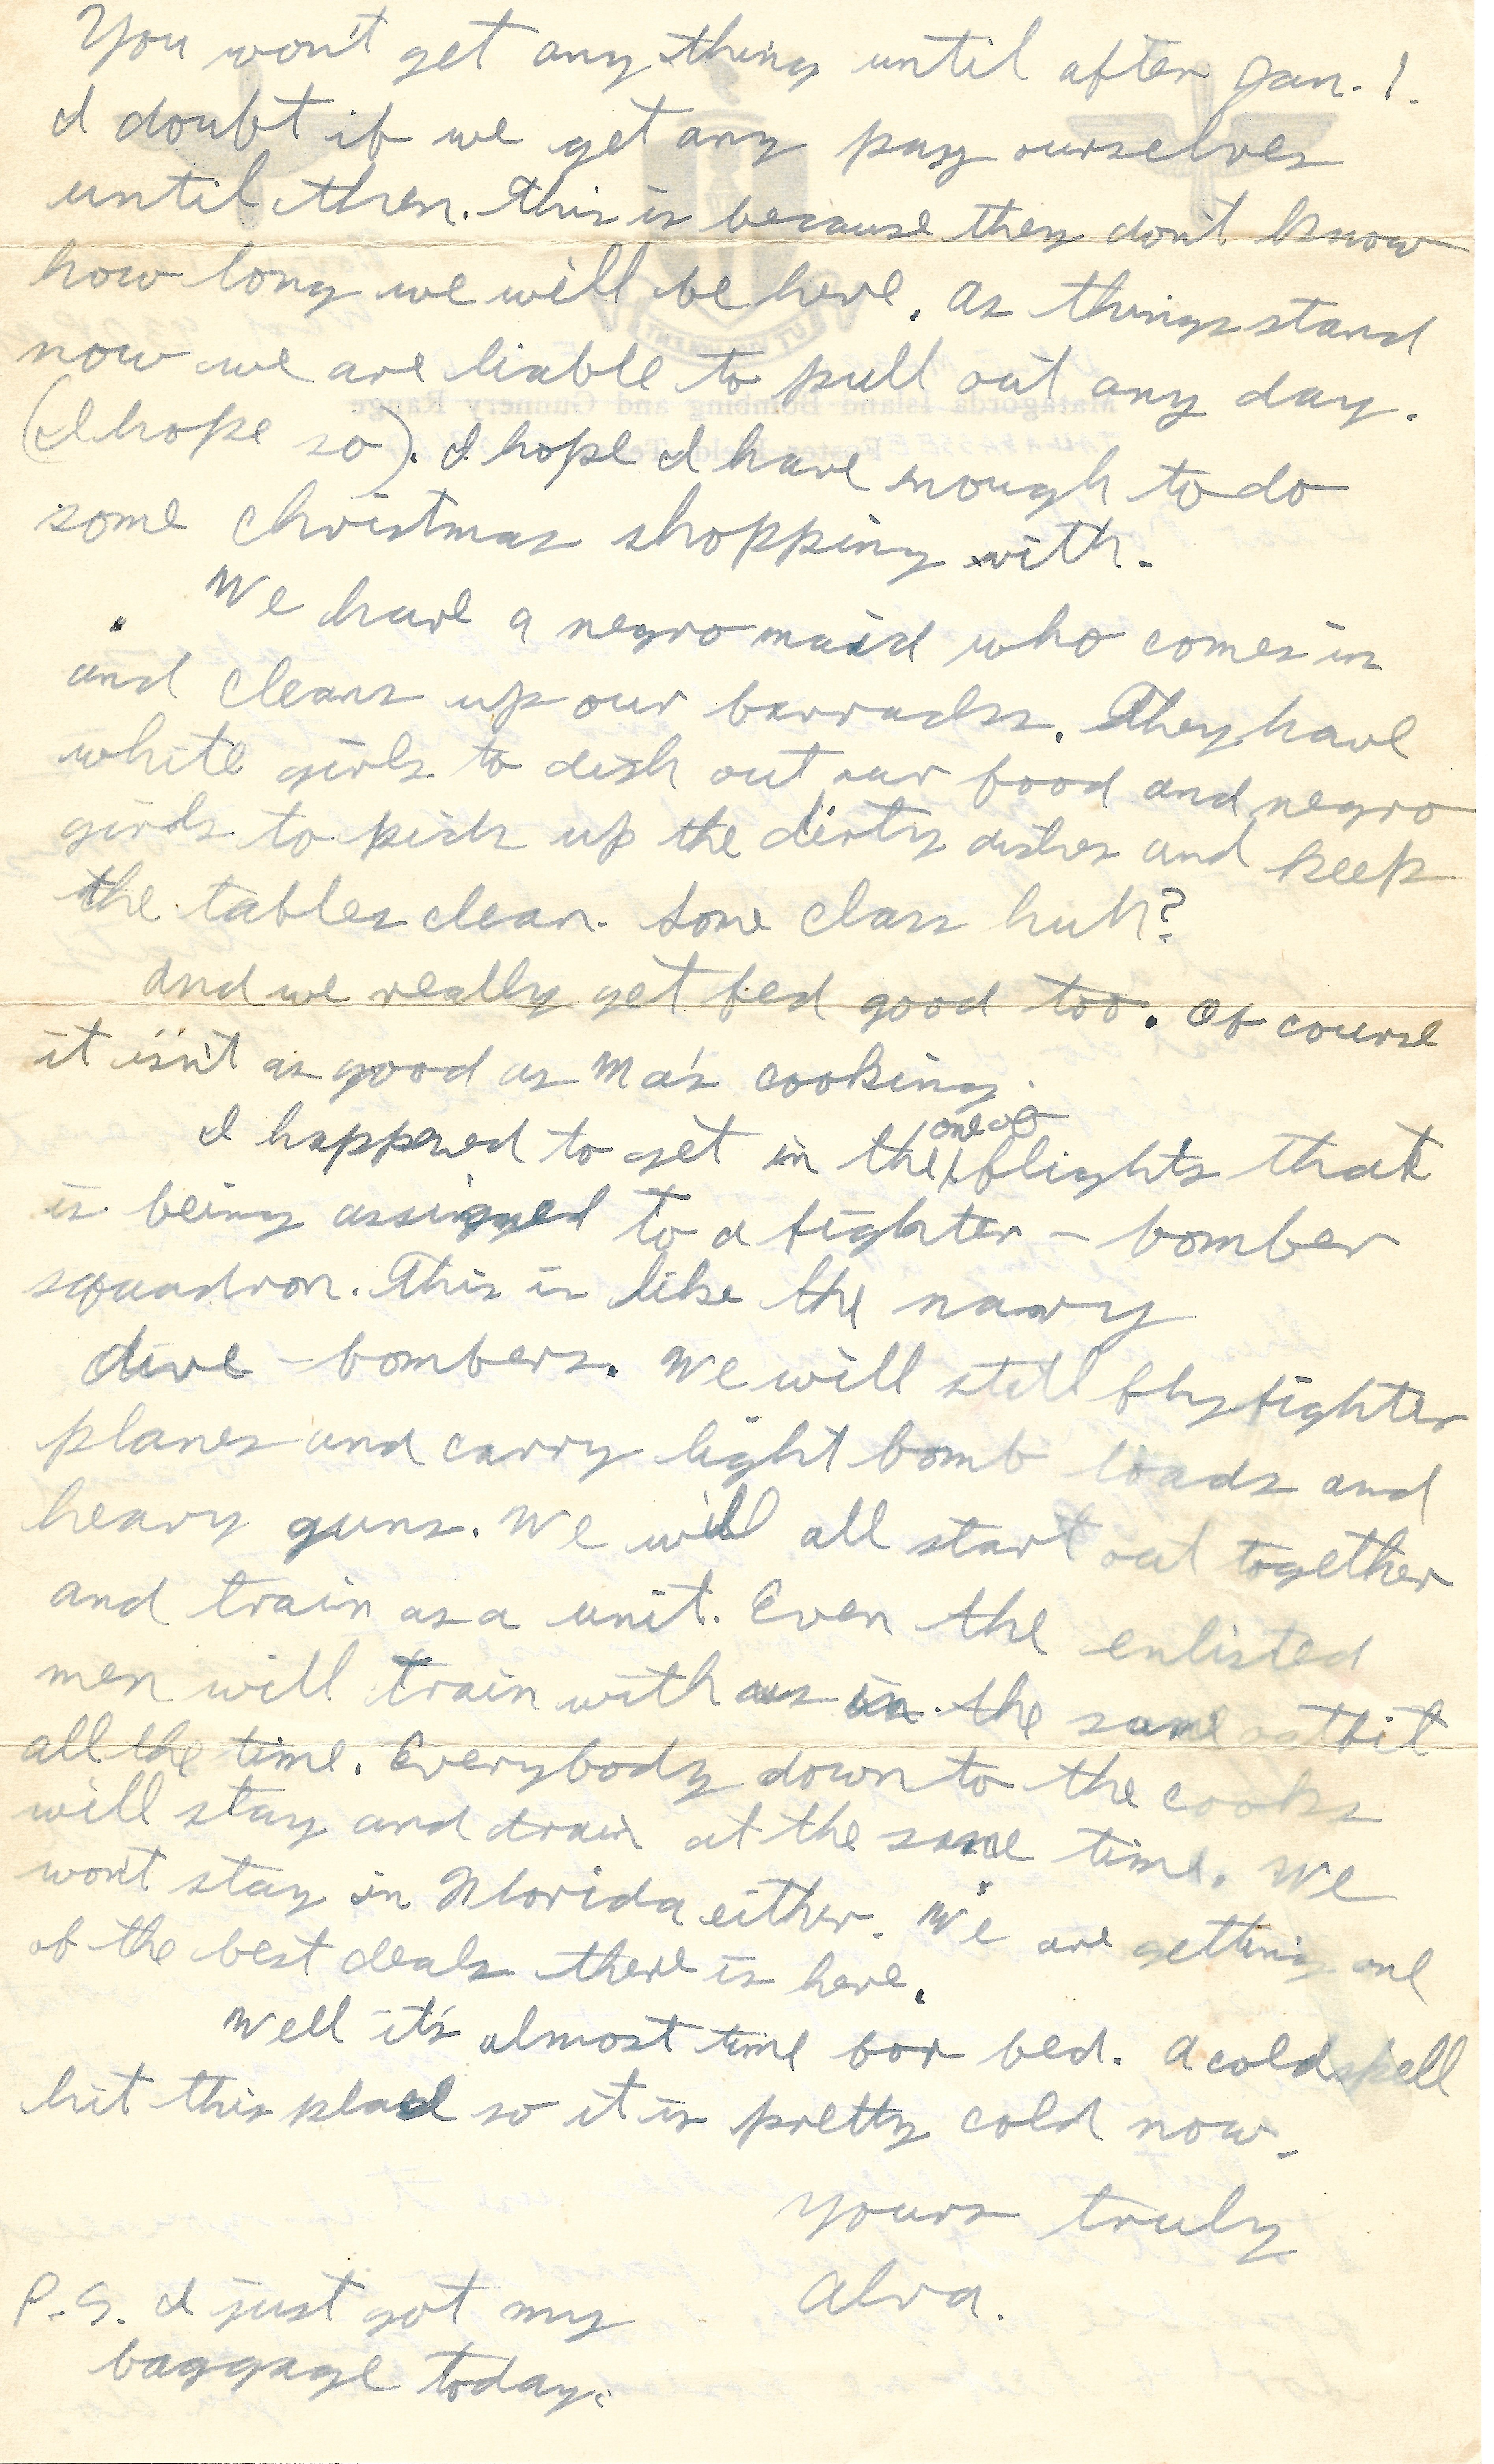 You won't get any thing until after Jan. 1.
I doubt if we get any pay ourselves
until then. This is because they don't know
how long we will be here. As things stand
now we are liable to pull out any day.
(I hope so). I hope I have enough to do
some Christmas shopping with.
We have a negro maid who comes in
and cleans up our barracks. They have
white girls to dish out our food and negro
girls to pick up the dirty dishes and keep
the tables clean. Some class huh?
And we really get fed good too. Of course
it isn't as good as Ma's cooking.
I happened to get in the one of flights that
is being assigned to a fighter - bomber
squadron. This is like the navy
dive - bombers. We will still fly fighter
planes and carry light bomb loads and
heavy guns. We will all start out together
and train as a unit. Even the enlisted
men will train with us in the same outfit
all the time. Everybody down to the cooks
will stay and train at the same time. We
won't stay in Florida either. We are getting one
of the best deals there is here.
Well it's almost time for bed. A cold spell
hit this place so it is pretty cold now.
Yours truly
Alva.
P.S. I just got my
baggage today.
Matagorda Island Bombing and Gunnery Range